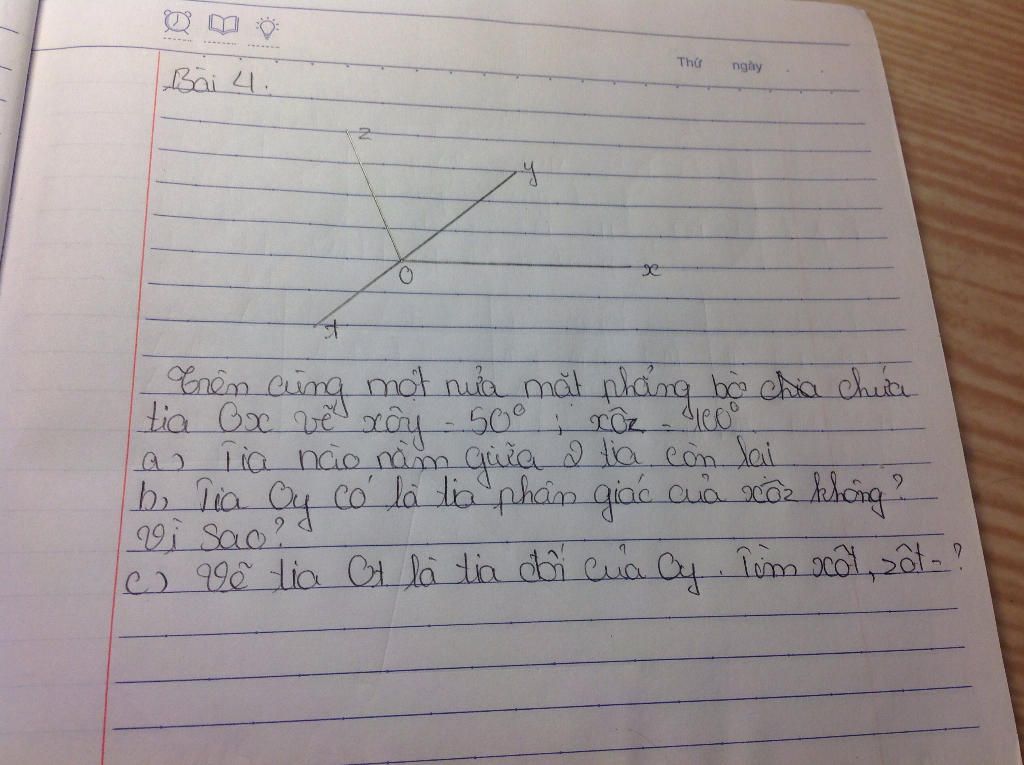 Thứ ngày
Bài 4.
z
y
O
x
t
Trên cùng một nửa mặt phẳng bờ chứa
tia Ox vẽ xôy = 50° ; xôz = 100°.
a) Tia nào nằm giữa 2 tia còn lại
b, Tia Oy có là tia phân giác của xôz không?
Vì sao?
c) Vẽ tia Ot là tia đối của Oy. Tìm xôt, zôt = ?